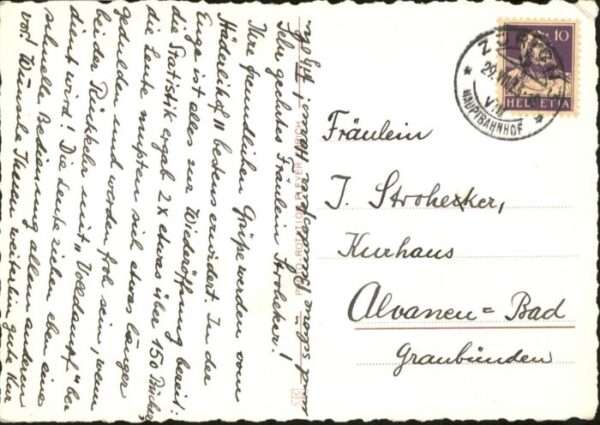 Sehr geehrtes Fräulein Stroheker!
Ihre freundlichen Grüße werden vom
Haderlihof II bestens erwidert. In der
Enge ist alles zur Wiederöffnung bereit:
die Statistik ergab 2x etwas über 150
die Leute müssen sich etwas länger
gedulden und werden froh sein, wenn
bei der Rückkehr mit "Volldampf" be
dient wird! Die Leute ziehen eben eine
schnelle Bedienung allem anderen
vor! Wünsche Ihnen weiterhin gute Kur
und
ZÜRICH
29.VII.
VIII
HAUPTBAHNHOF
10
HELVETIA
Fräulein
J. Stroheker,
Kurhaus
Alvaneu=Bad
Graubünden